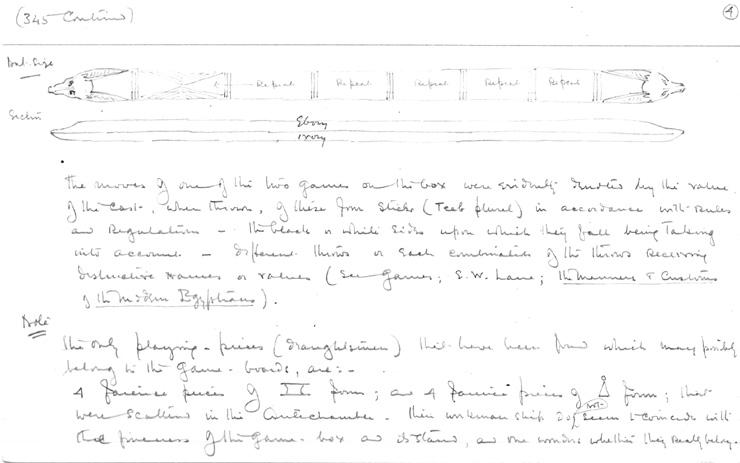 (345 Continued)
4
Nat. Size
Repeat Repeat Repeat Repeat Repeat
Section
Ebony
Ivory
The moves of one of the two games on the box were evidently denoted by the value
of the cast, when thrown, of these four sticks (Teab plural) in accordance with rules
and Regulations - the black or white sides upon which they fall being taking
into account - different throws or each combination of the throws receiving
distinctive names or values (See Games; E.W. Lane; The Manners & Customs
of the Modern Egyptians).
Note
The only playing-pieces (draughtsmen) that have been found which may possibly
belong to the game-boards, are:-
4 faience pieces of form; and 4 faience pieces of form; that
were scattered in the Antechamber. Their workmanship does not seem to coincide with
the fineness of the game-box and its stand, and one wonders whether they really belong.